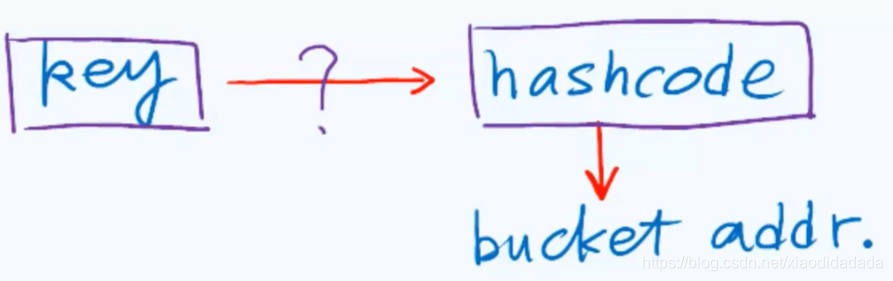 key ? hashcode
bucket addr.
https://blog.csdn.net/xiaodidadada